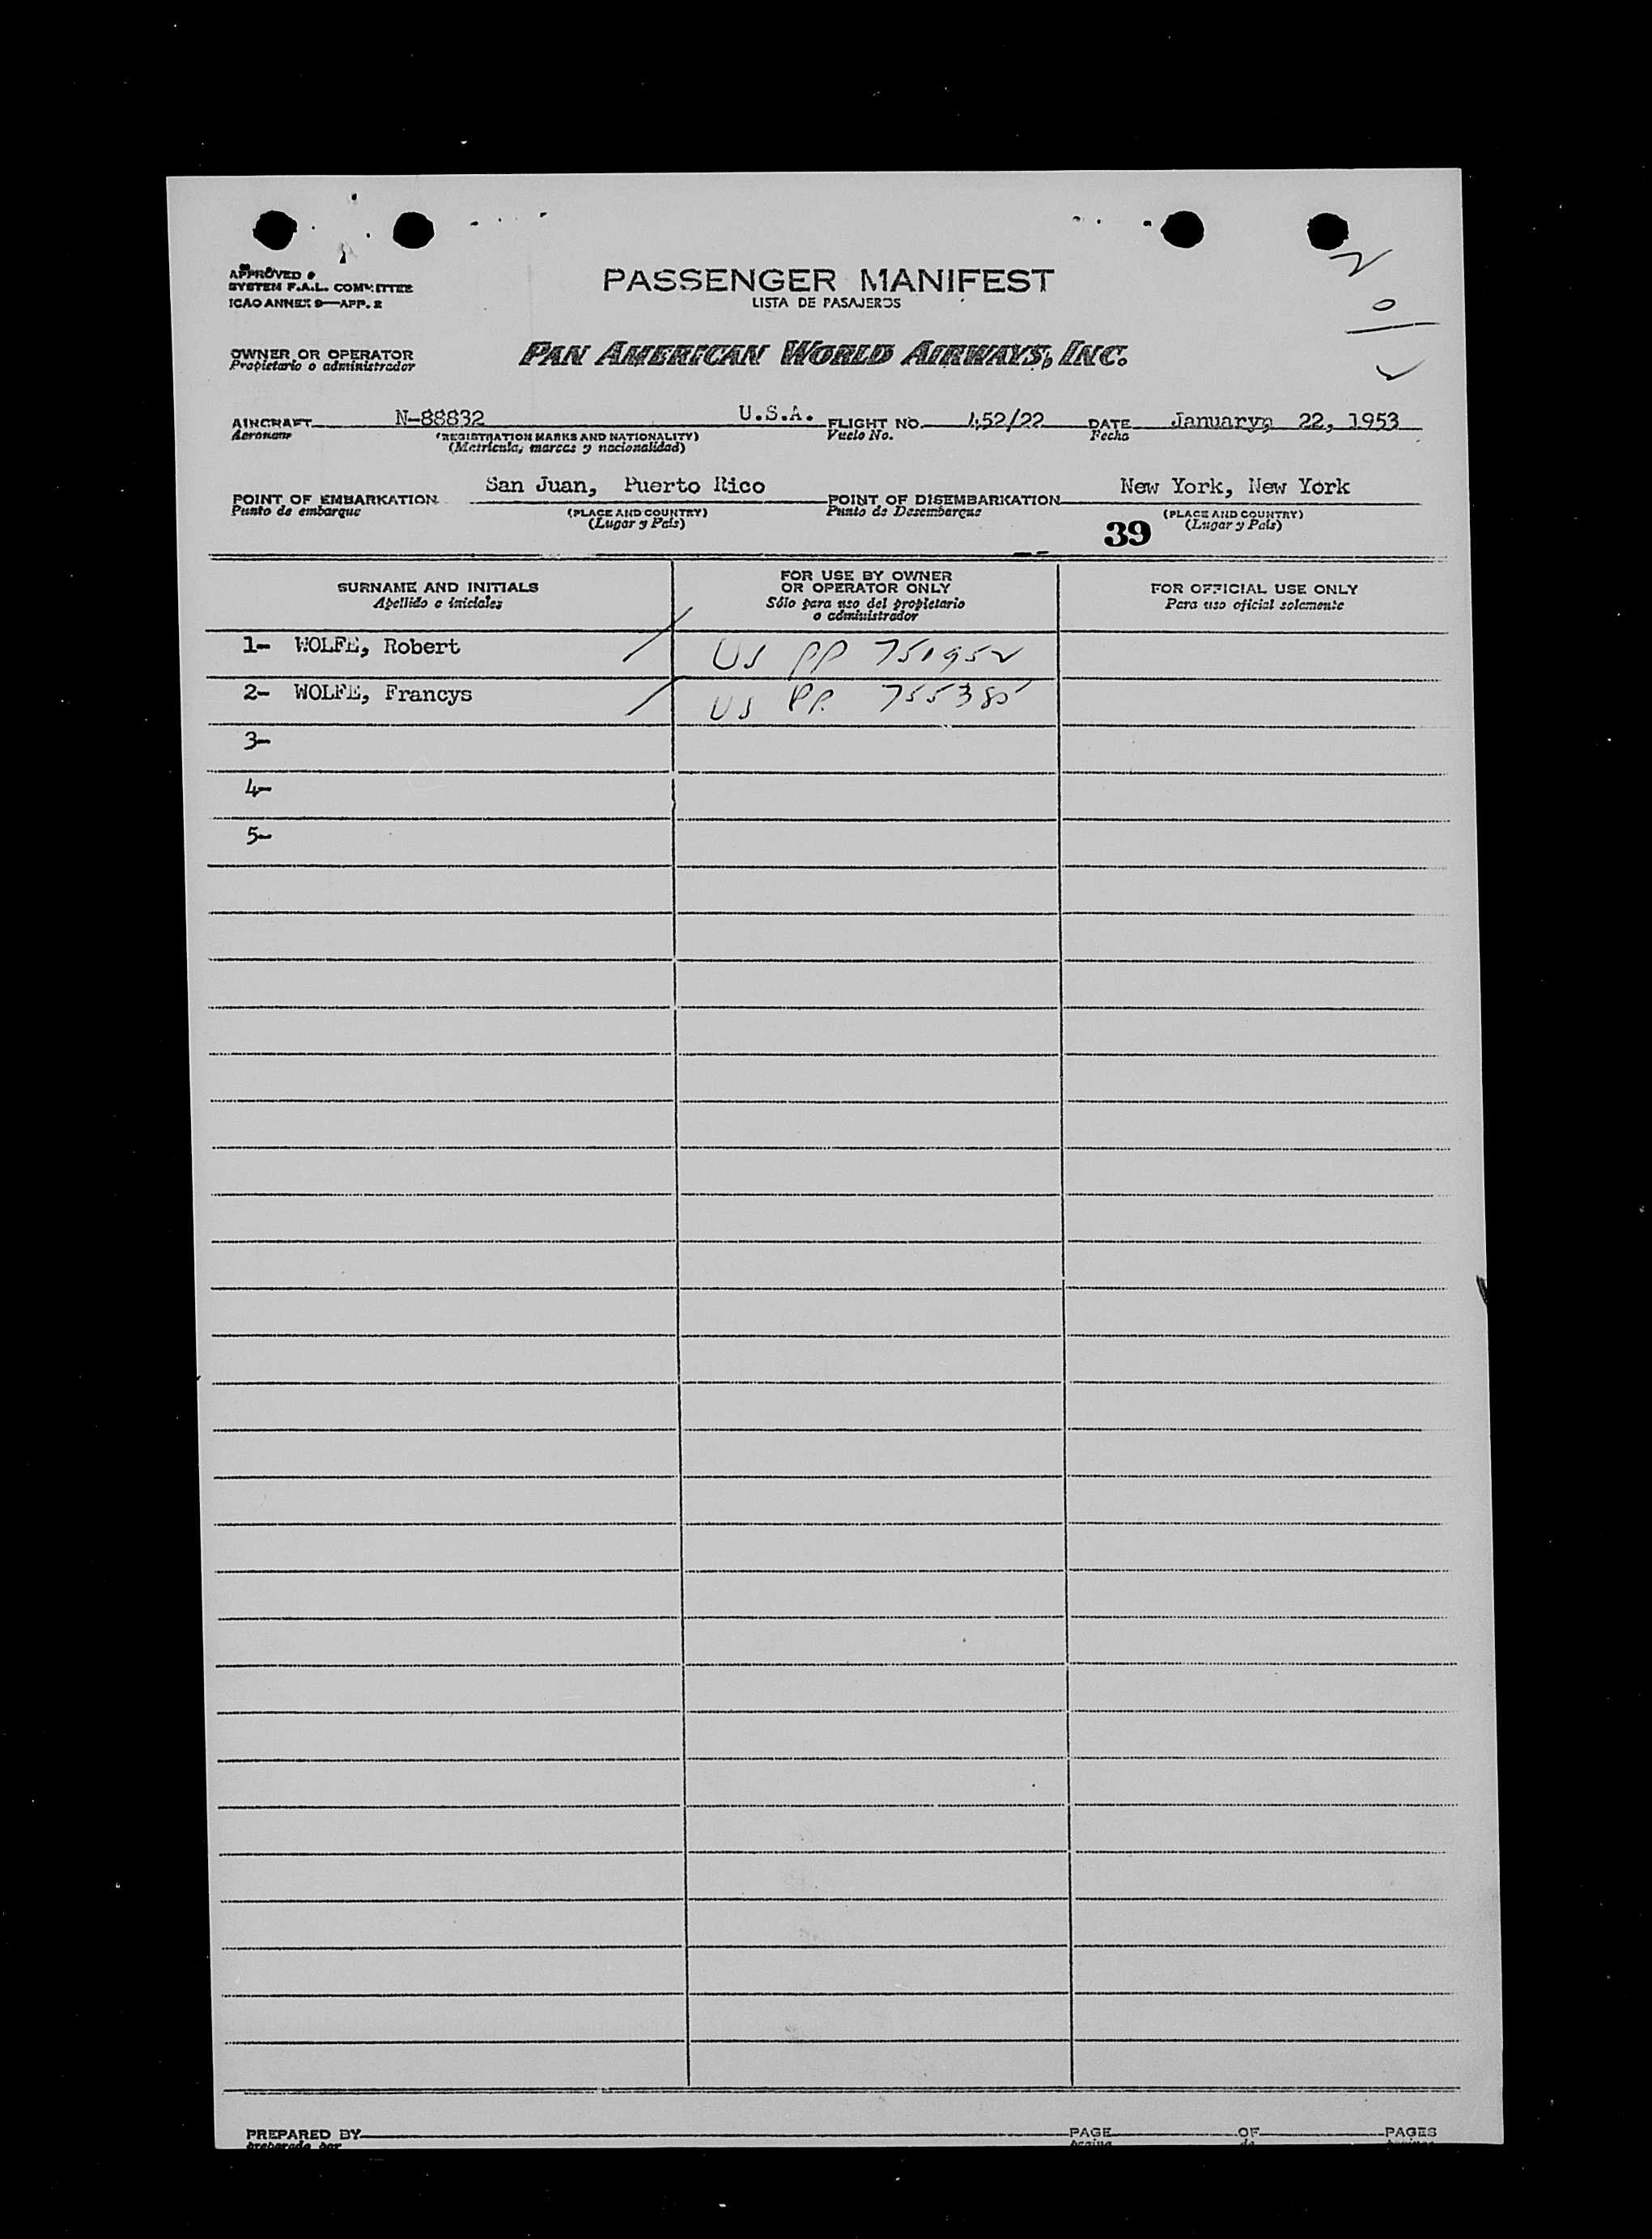 APPROVED
SYSTEM F.A.L. COMMITTEE
ICAO ANNEX 9—APP. 2
PASSENGER MANIFEST
LISTA DE PASAJEROS
2
0
2
OWNER OR OPERATOR
Propietario o administrador
PAN AMERICAN WORLD AIRWAYS, INC.
AIRCRAFT N-88832 U.S.A. FLIGHT NO. 452/22 DATE January, 22, 1953
Aeronave (REGISTRATION MARKS AND NATIONALITY) Vuelo No. Fecha
(Matricula, marcas y nacionalidad)
POINT OF EMBARKATION San Juan, Puerto Rico POINT OF DISEMBARKATION New York, New York
Punto de embarque (PLACE AND COUNTRY) Punto de Desembarque (PLACE AND COUNTRY)
(Lugar y País) 39 (Lugar y País)
SURNAME AND INITIALS
Apellido e iniciales
FOR USE BY OWNER
OR OPERATOR ONLY
Sólo para uso del propietario
o administrador
FOR OFFICIAL USE ONLY
Para uso oficial solamente
1- WOLFE, Robert / US PP 751952
2- WOLFE, Francys / US PP. 755385
3-
4-
5-
PREPARED BY PAGE OF PAGES
preparado por pagina de paginas